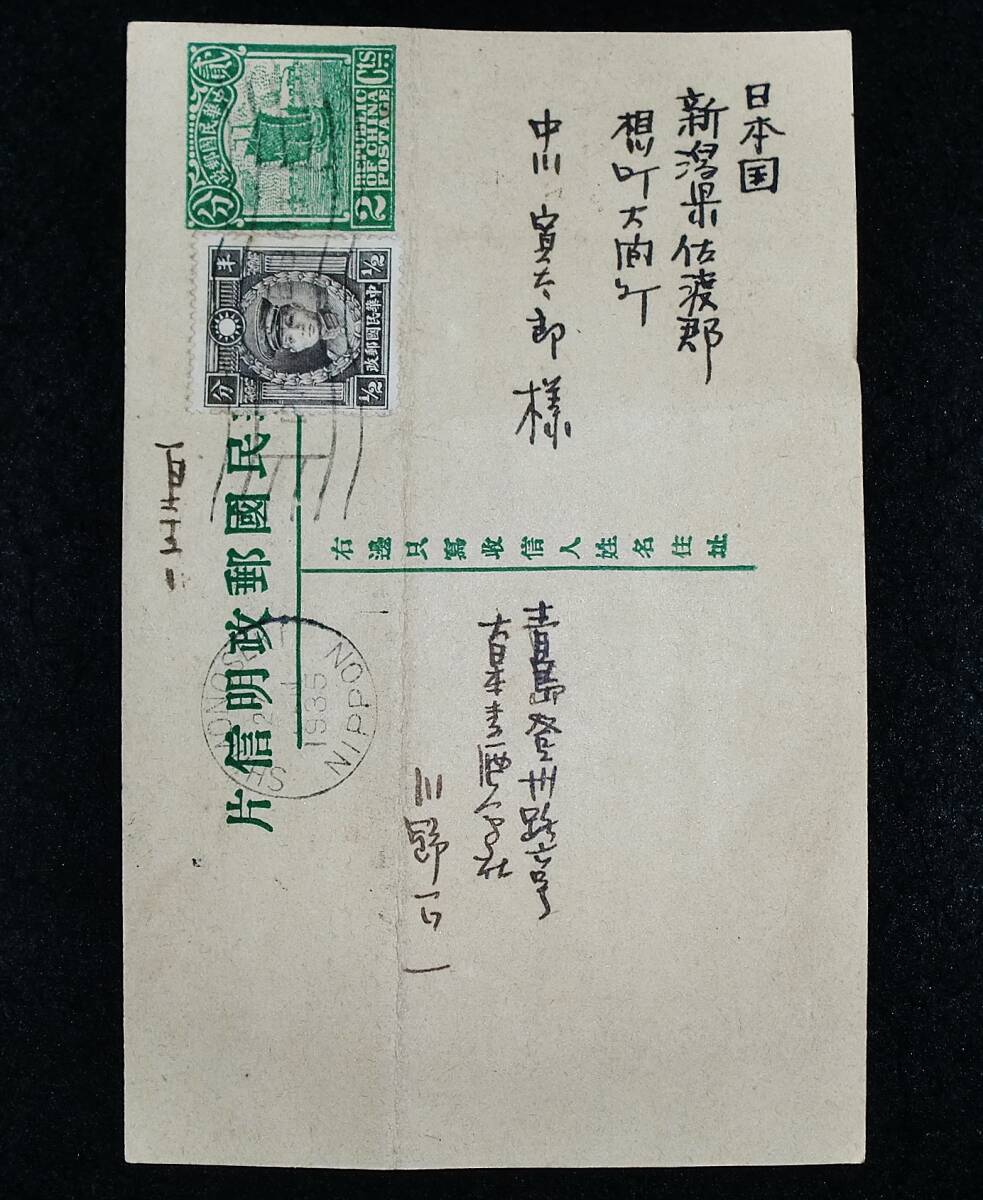 日本国
新潟県佐渡郡
相川町大間町
中川寅太郎様
中華民國郵政
貳分
REPUBLIC
OF CHINA
POSTAGE
2 Cts
中華民國郵政
半分
1/2
1/2
民國郵政明信片
右邊只寫收信人姓名住址
青島登州路六号
大日本麦酒会社
三野
SHIMONOSEKI
1935
NIPPON